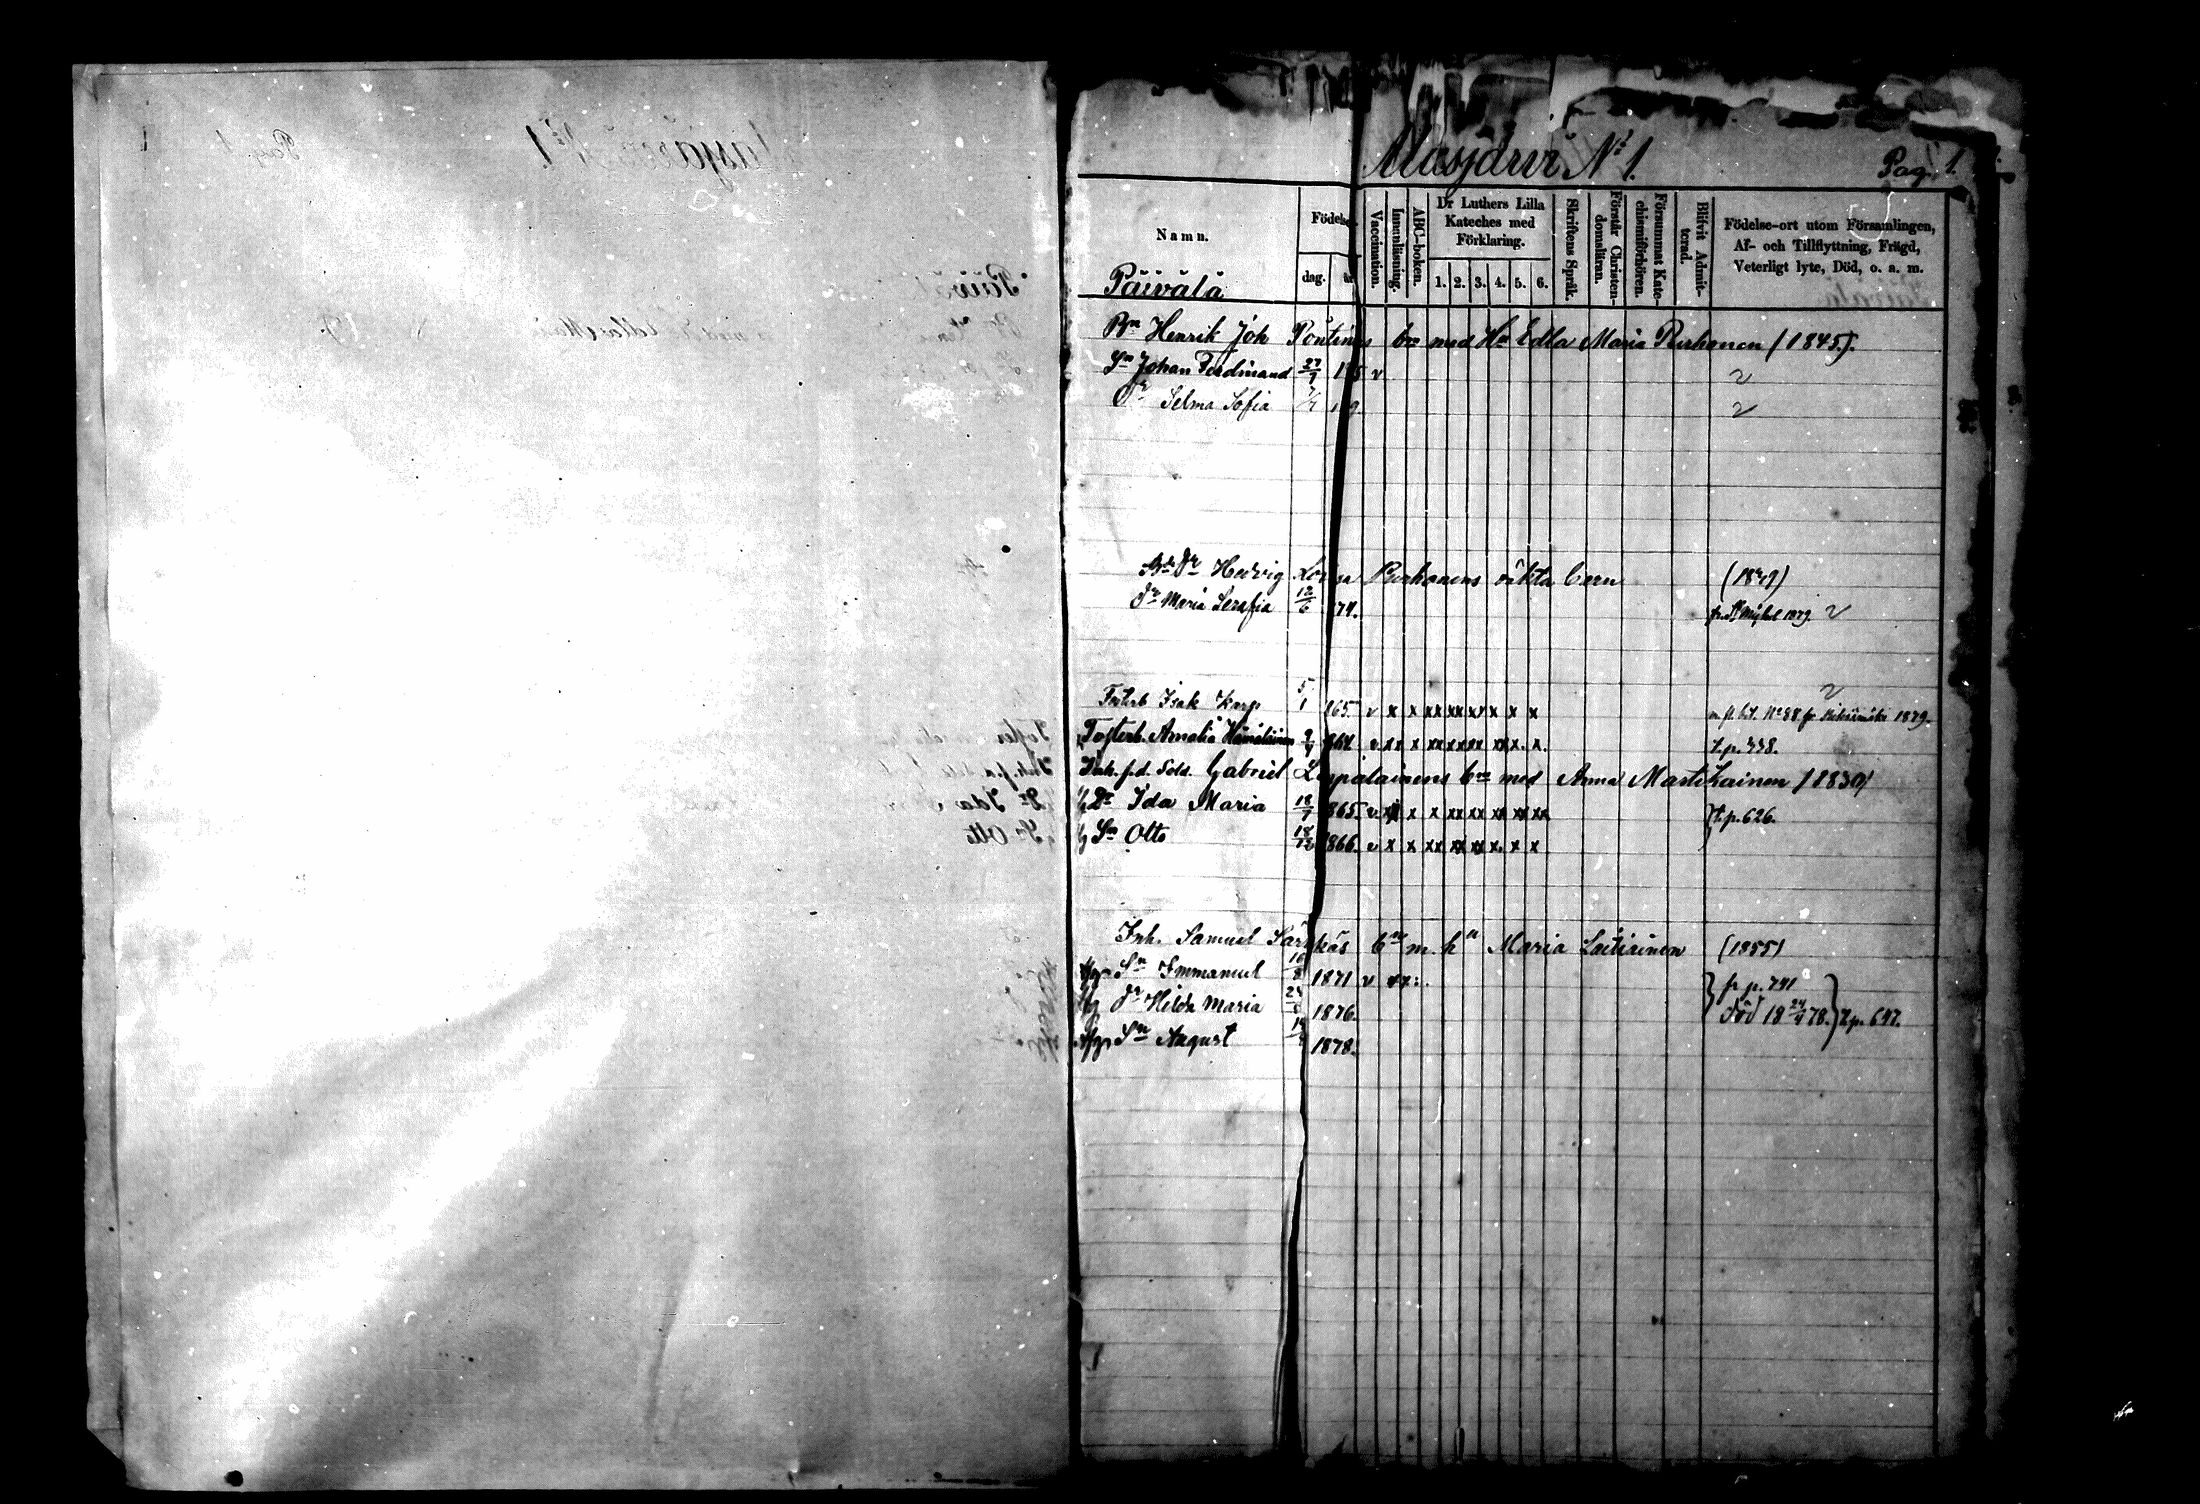 Masjärvi N:1.
Pag. 1.
Namn.
Födelse
dag.
Vaccination.
Innanläsning.
ABC-boken.
Dr Luthers Lilla Kateches med Förklaring.
1. 2. 3. 4. 5. 6.
Skriftens Språk.
Förstår Christendomsläran.
Försummat Katechismiförhören.
Blifvit Admitterad.
Födelse-ort utom Församlingen,
Af- och Tillflyttning, Frägd,
Veterligt lyte, Död, o. a. m.
Päivälä
Bn Henrik Joh Pontinus bn med Hn Edla Maria Purhonen (1845).
Sn Johan Ferdinand 27/7 v
Dr Selma Sofia
Dr Hedvig Purhonens oäkta barn (1849)
Dr Maria Serafia 12/6 74. fr. St Michel 1879.
Fosterb Isak Karp 5/1 165. v x x xx xx x x x x
N:88 fr. 1879.
Fosterb. Amalia Hämäläinen 864 t.p. 338.
Inh. f.d. Sold. Gabriel Leppäläinens bn med Anna Martikainen (1830)
Dr Ida Maria 18/7 865. } t.p. 626.
Sn Otto 18/12 866. v x x xx xx xx x. x x
Inh. Samuel Särkkäs bn m. hn Maria Laitinen (1855)
Sn Immanuel 1871 v } fr p. 741
Dr Hilda Maria 1876. Död 18 24/4 78. } t.p. 647.
Sn August 1878.